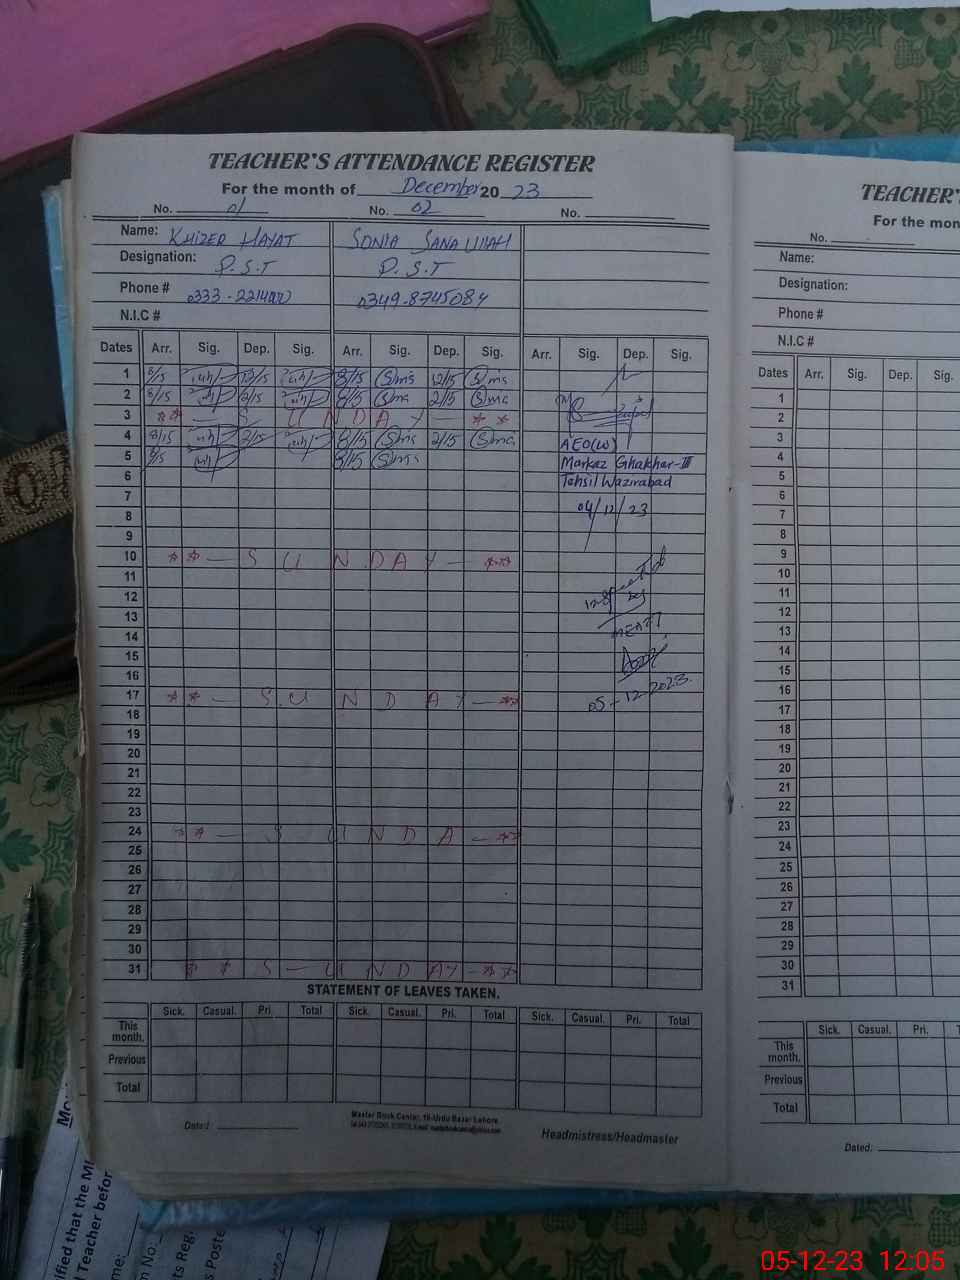 TEACHER'S ATTENDANCE REGISTER
For the month of December 20 23
No. 01 No. 02 No.
Name: KHIZER HAYAT SONIA SANA ULLAH
Designation: P.S.T P.S.T
Phone # 0349-8745084
N.I.C #
Dates Arr. Sig. Dep. Sig. Arr. Sig. Dep. Sig. Arr. Sig. Dep. Sig.
1 8/15 12/15 8/15 Sms 12/15 Sms
2 8/15 2/15 8/15 Sms 2/15 Sms
3 ** — S U N D A Y — **
4 8/15 2/15 8/15 Sms 2/15 Sms
AEO(W)
5 8/15 8/15 Sms
Markaz Ghakhar-III
6
Tehsil Wazirabad
7
8
04/12/23
9
10 ** — S U N D A Y — **
11
12
13
14
15
16
17 ** — S U N D A Y — **
05-12-2023
18
19
20
21
22
23
24 ** — S U N D A — **
25
26
27
28
29
30
31 ** S — U N D A Y — **
STATEMENT OF LEAVES TAKEN.
Sick. Casual. Pri. Total Sick. Casual. Pri. Total Sick. Casual. Pri. Total
This month.
Previous
Total
Dated:
Master Book Center, 19-Urdu Bazar Lahore
Headmistress/Headmaster
TEACHER'
For the mon
No.
Name:
Designation:
Phone #
N.I.C #
Dates Arr. Sig. Dep. Sig.
1
2
3
4
5
6
7
8
9
10
11
12
13
14
15
16
17
18
19
20
21
22
23
24
25
26
27
28
29
30
31
Sick. Casual. Pri. T
This month.
Previous
Total
Dated:
ified that the
Teacher befor
05-12-23 12:05